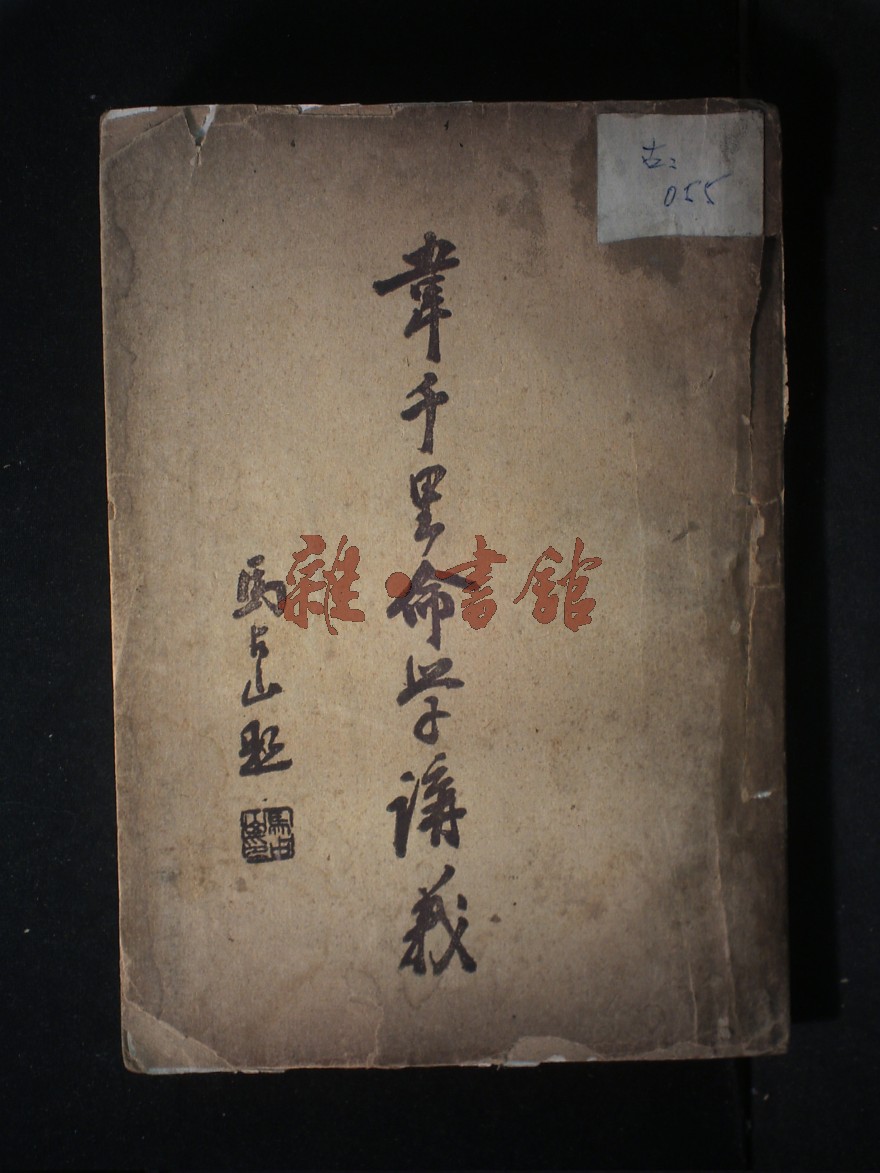 古:
055
韋千里命學講義
馬占山題
雜·書館